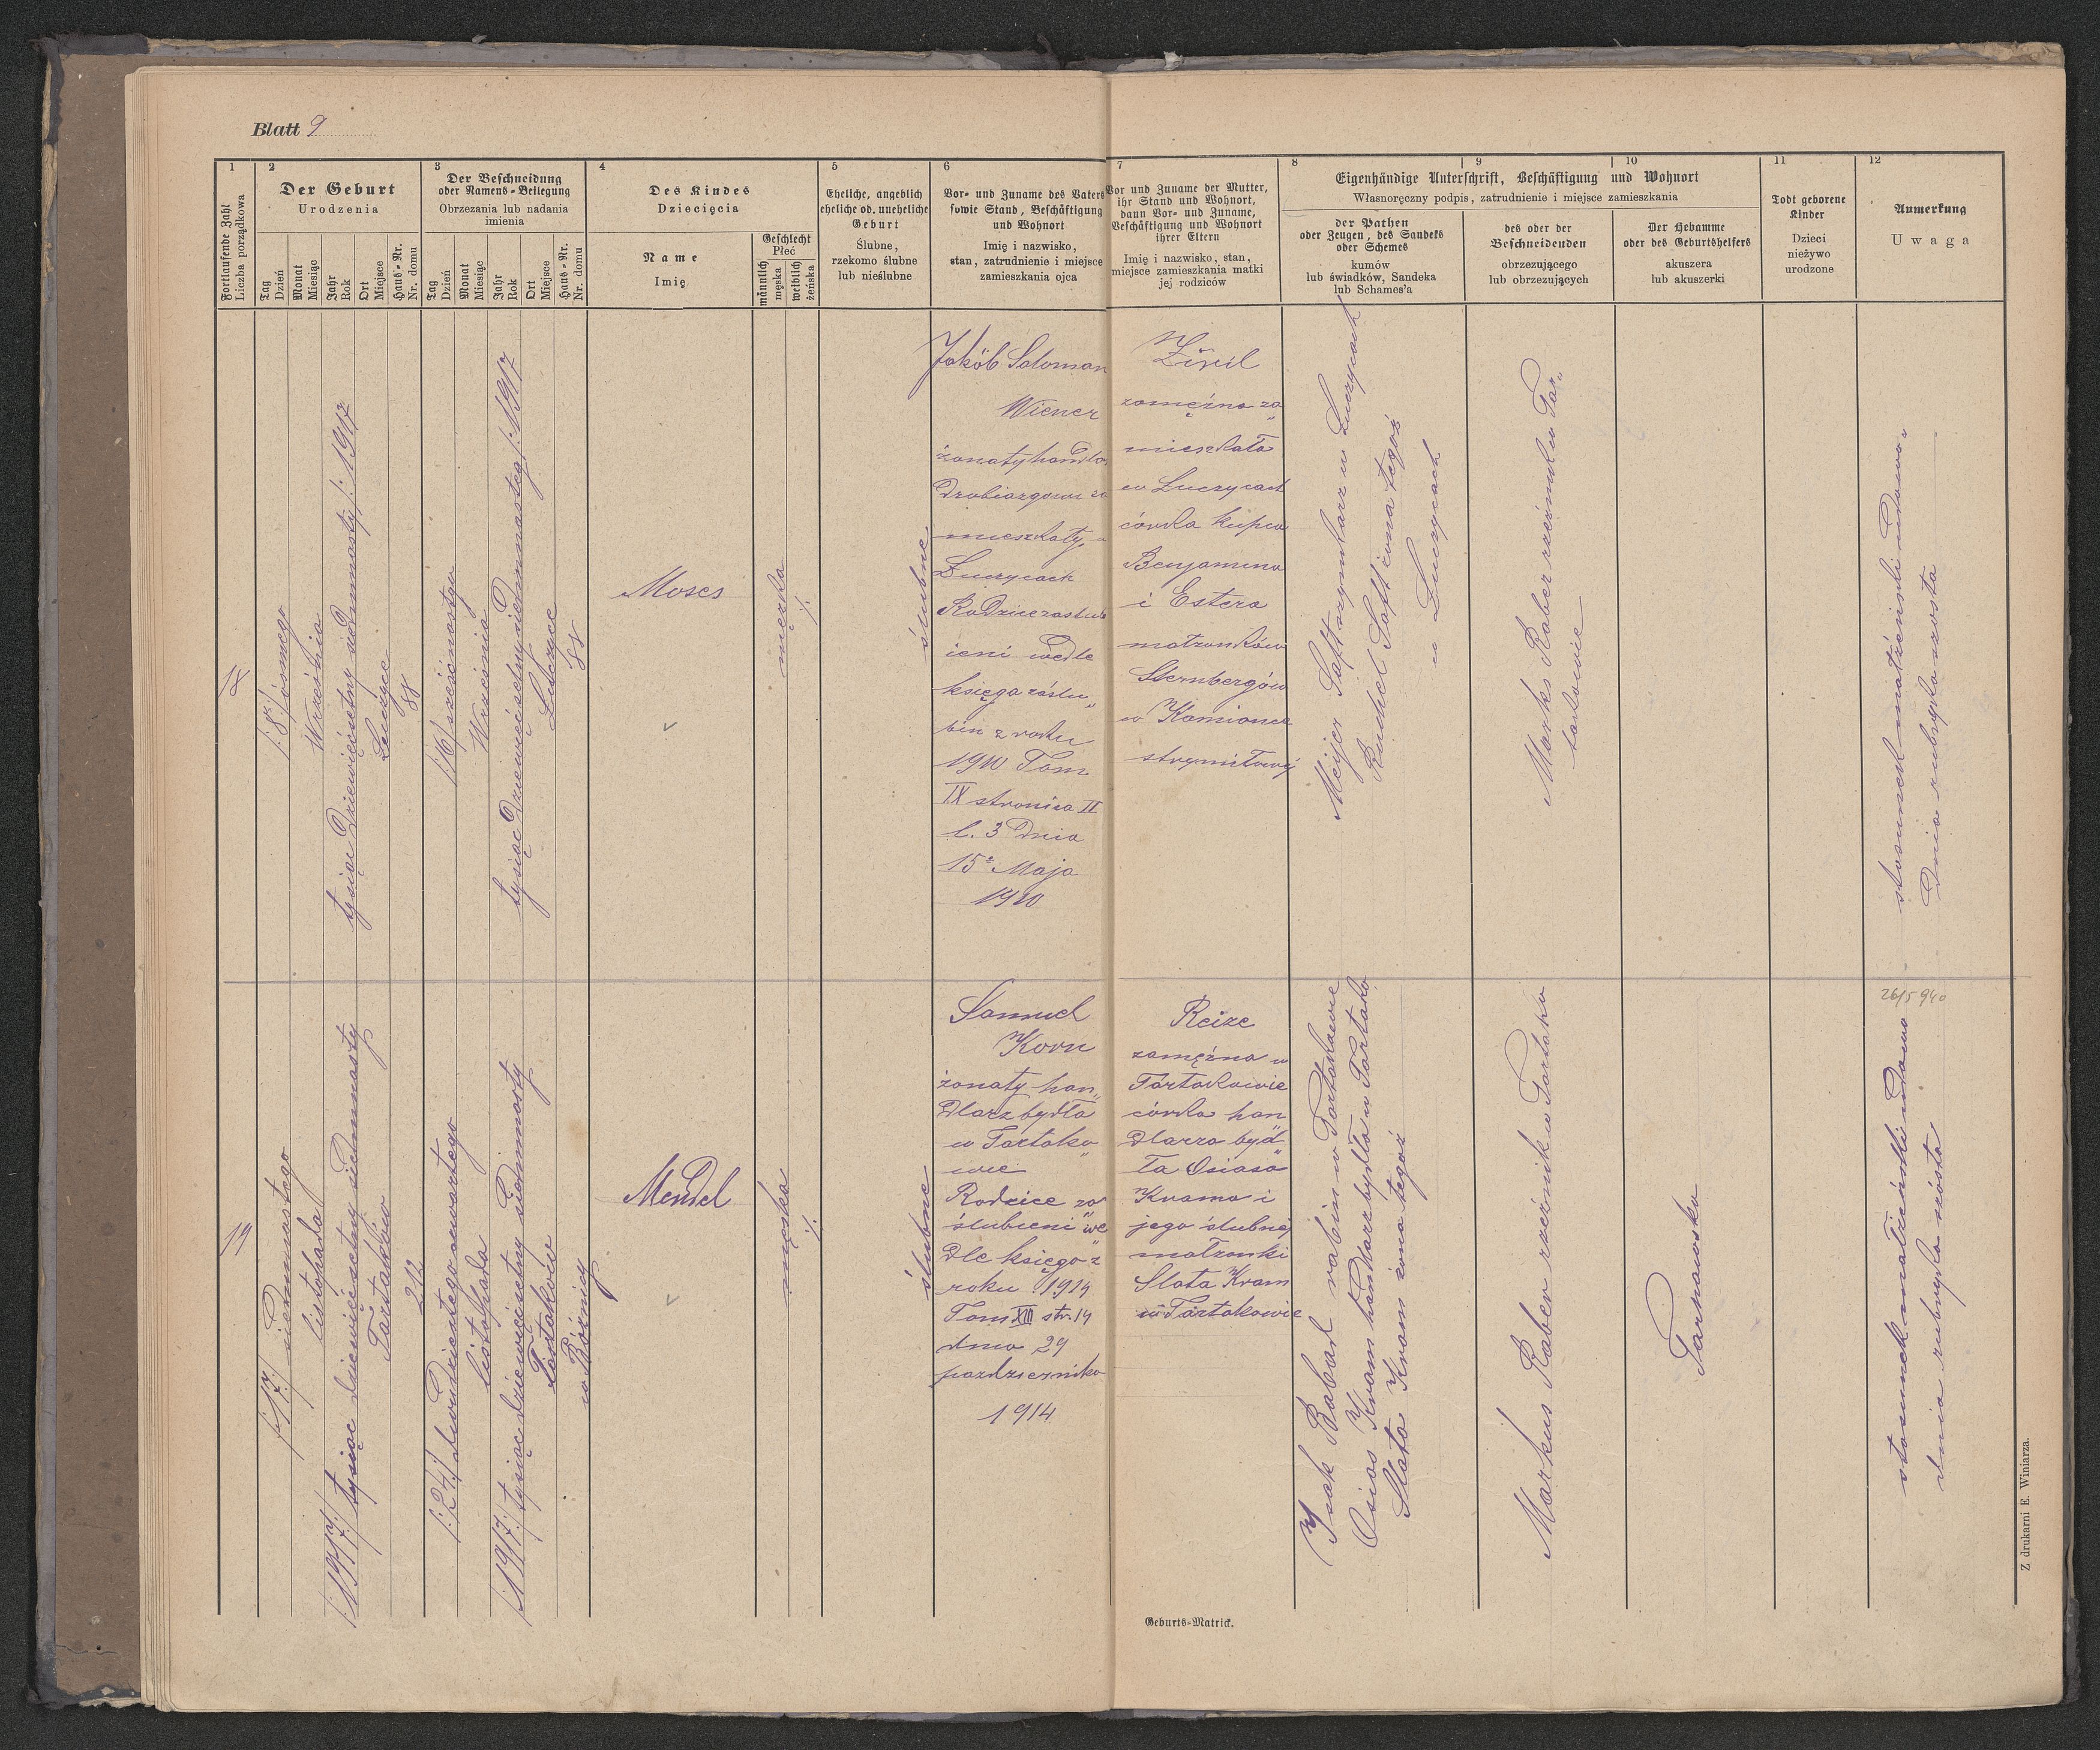 Blatt 9
1
Fortlaufende Zahl
Liczba porządkowa
2
Der Geburt
Urodzenia
Tag
Dzień
Monat
Miesiąc
Jahr
Rok
Ort
Miejsce
Haus-Nr.
Nr. domu
3
Der Beschneidung
oder Namens-Beilegung
Obrzezania lub nadania
imienia
Tag
Dzień
Monat
Miesiąc
Jahr
Rok
Ort
Miejsce
Haus-Nr.
Nr. domu
4
Des Kindes
Dziecięcia
Name
Imię
Geschlecht
Płeć
männlich
męska
weiblich
żeńska
5
Eheliche, angeblich
eheliche od. uneheliche
Geburt
Ślubne,
rzekomo ślubne
lub nieślubne
6
Vor- und Zuname des Vaters
sowie Stand, Beschäftigung
und Wohnort
Imię i nazwisko,
stan, zatrudnienie i miejsce
zamieszkania ojca
7
Vor und Zuname der Mutter,
ihr Stand und Wohnort,
dann Vor- und Zuname,
Beschäftigung und Wohnort
ihrer Eltern
Imię i nazwisko, stan,
miejsce zamieszkania matki
jej rodziców
Eigenhändige Unterschrift, Beschäftigung und Wohnort
Własnoręczny podpis, zatrudnienie i miejsce zamieszkania
8
der Pathen
oder Zeugen, des Sandeks
oder Schemes
kumów
lub świadków, Sandeka
lub Schames'a
9
des oder der
Beschneidenden
obrzezującego
lub obrzezujących
10
Der Hebamme
oder des Geburtshelfers
akuszera
lub akuszerki
11
Todt geborene
Kinder
Dzieci
nieżywo
urodzone
12
Anmerkung
Uwaga
18
/:8:/ ósmego
Września
tysiąc dziewięćsetny siedmnasty /: 1917
Łuczyce
88
/:16/ szesnastego
Września
tysiąc dziewięćsetny siedmnastego /: 1917
Łuczyce
88
Moses
męzka
ślubne
Jakób Salomon
Wiener
żonaty
drobiazgowi za
mieszkały
Łuczycach
Rodzice zaślu
ieni wedle
księga zaślu„
bin z roku
1910 Tom
IX stronica II
l. 3 Dnia
15º Maja
1910
zamężna za„
mieszkała
w Łuczycach
córka kupca
Benjamina
i Estera
małzonków
Sternbergów
w Kamionce
strumiłowej
Meijer Saft szynkarz w Łuczycach
Ruchel Saft żona tegoż
w Łuczycach
Marks Raber rzeźnik w Tar„
takowie
stosunek małżeński udowo„
Dnia rubryka szosta
19
/:17:/ siedmnastego
listopada
/:1917:/ tysiąc dziewięćsetny siedmnasty
Tartaków
212
/:24:/ dwudziestego czwartego
listopada
/:1917:/ tysiąc dziewięćsetny siedmnasty
Tartaków
w Bóźnicy
Mendel
męska
ślubne
Samuel
Korn
żonaty han„
dlarz bydła
w Tartako„
wie
Rodzice za„
ślubieni we„
dle księga z
roku 1914
Tom XIII str. 14
dnia 29
pazdziernika
1914
Reize
zamężna w
Tartakowie
córka han
dlarza byd„
ła Osiasa
Krama i
jego ślubnej
małzonki
Slata Kram
w Tartakowie
Isak Babad rabin w Tartakowie
Osias Kram handlarz bydła w Tartako
Slata Kram żona tegoż
Markus Raber rzeźnik w Tartako
Tarnawska
26/5 940
stosunek małżeński udowo
dnia rubryka szósta
Geburts-Matrick.
Z drukarni E. Winiarza.